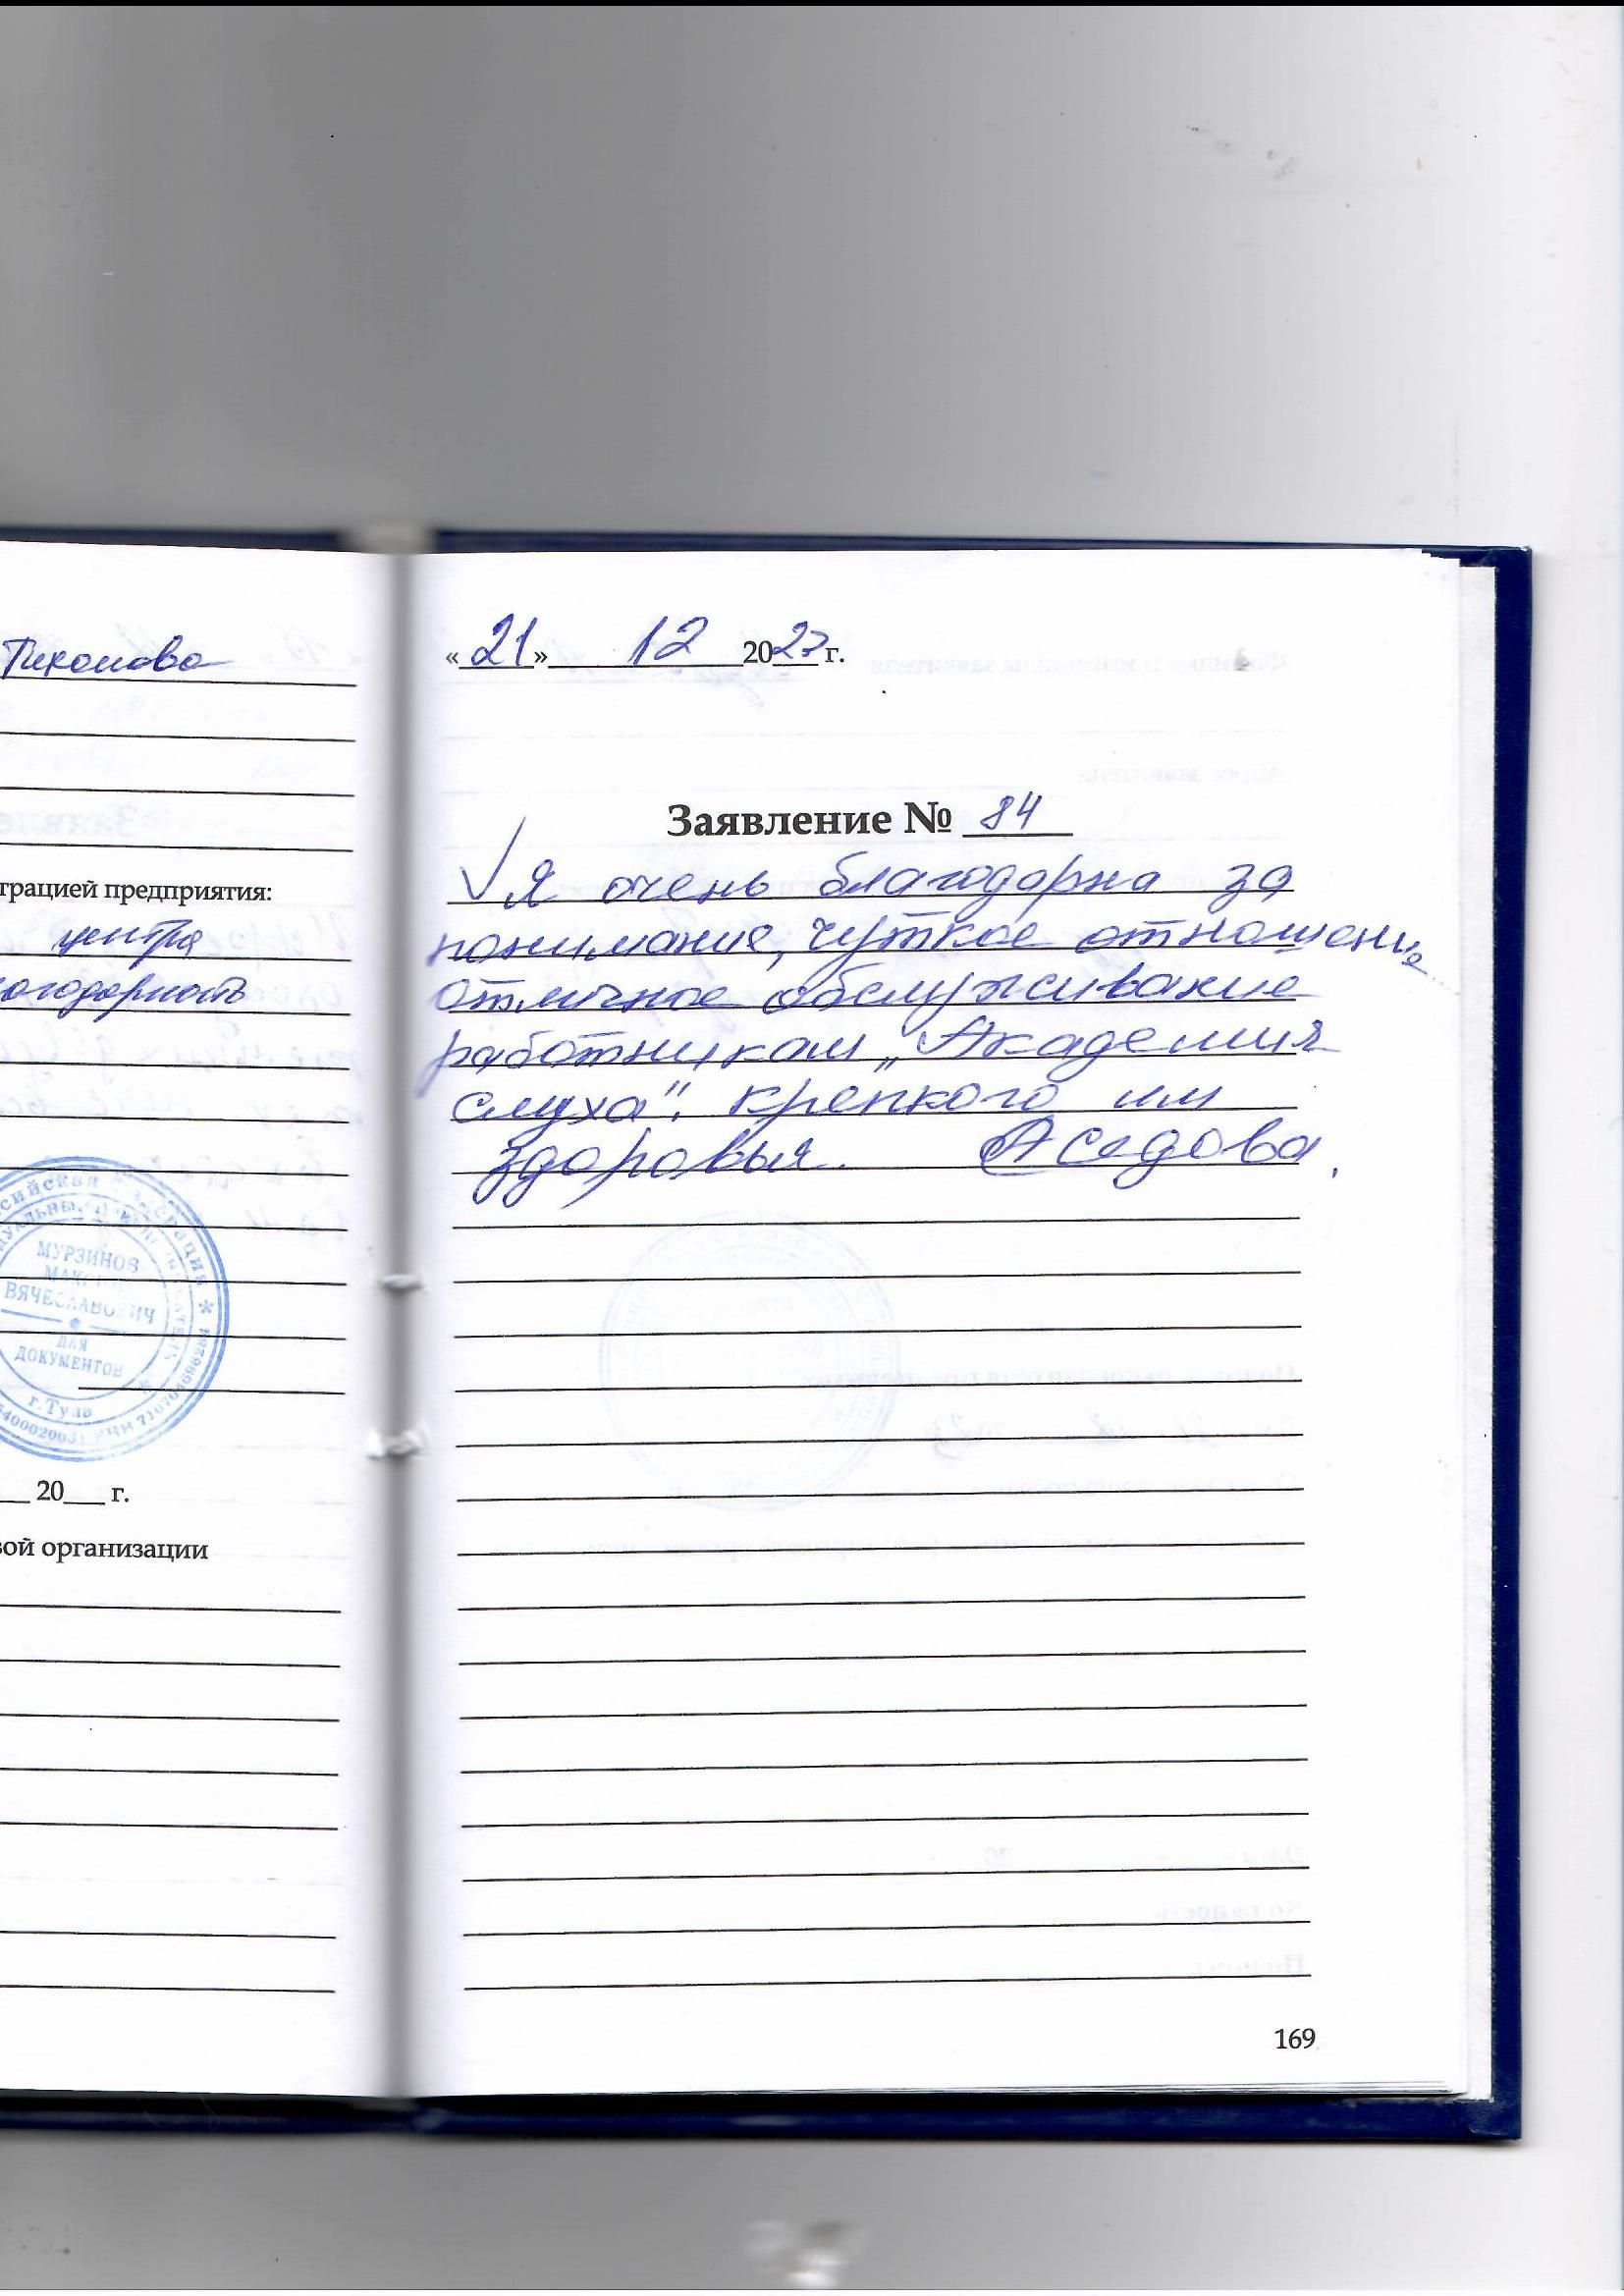 Тихонова
грацией предприятия:
центра
РОССИЙСКАЯ
МУРЗИНОВ
ВЯЧЕСЛАВОВИЧ
ДЛЯ
ДОКУМЕНТОВ
г. Тула
20 г.
вой организации
«21» 12 2023 г.
Заявление № 84
Я очень благодарна за
понимание, чуткое отношение
отличное обслуживание
работникам „Академия
слуха". Крепкого им
здоровья. Аседова.
169